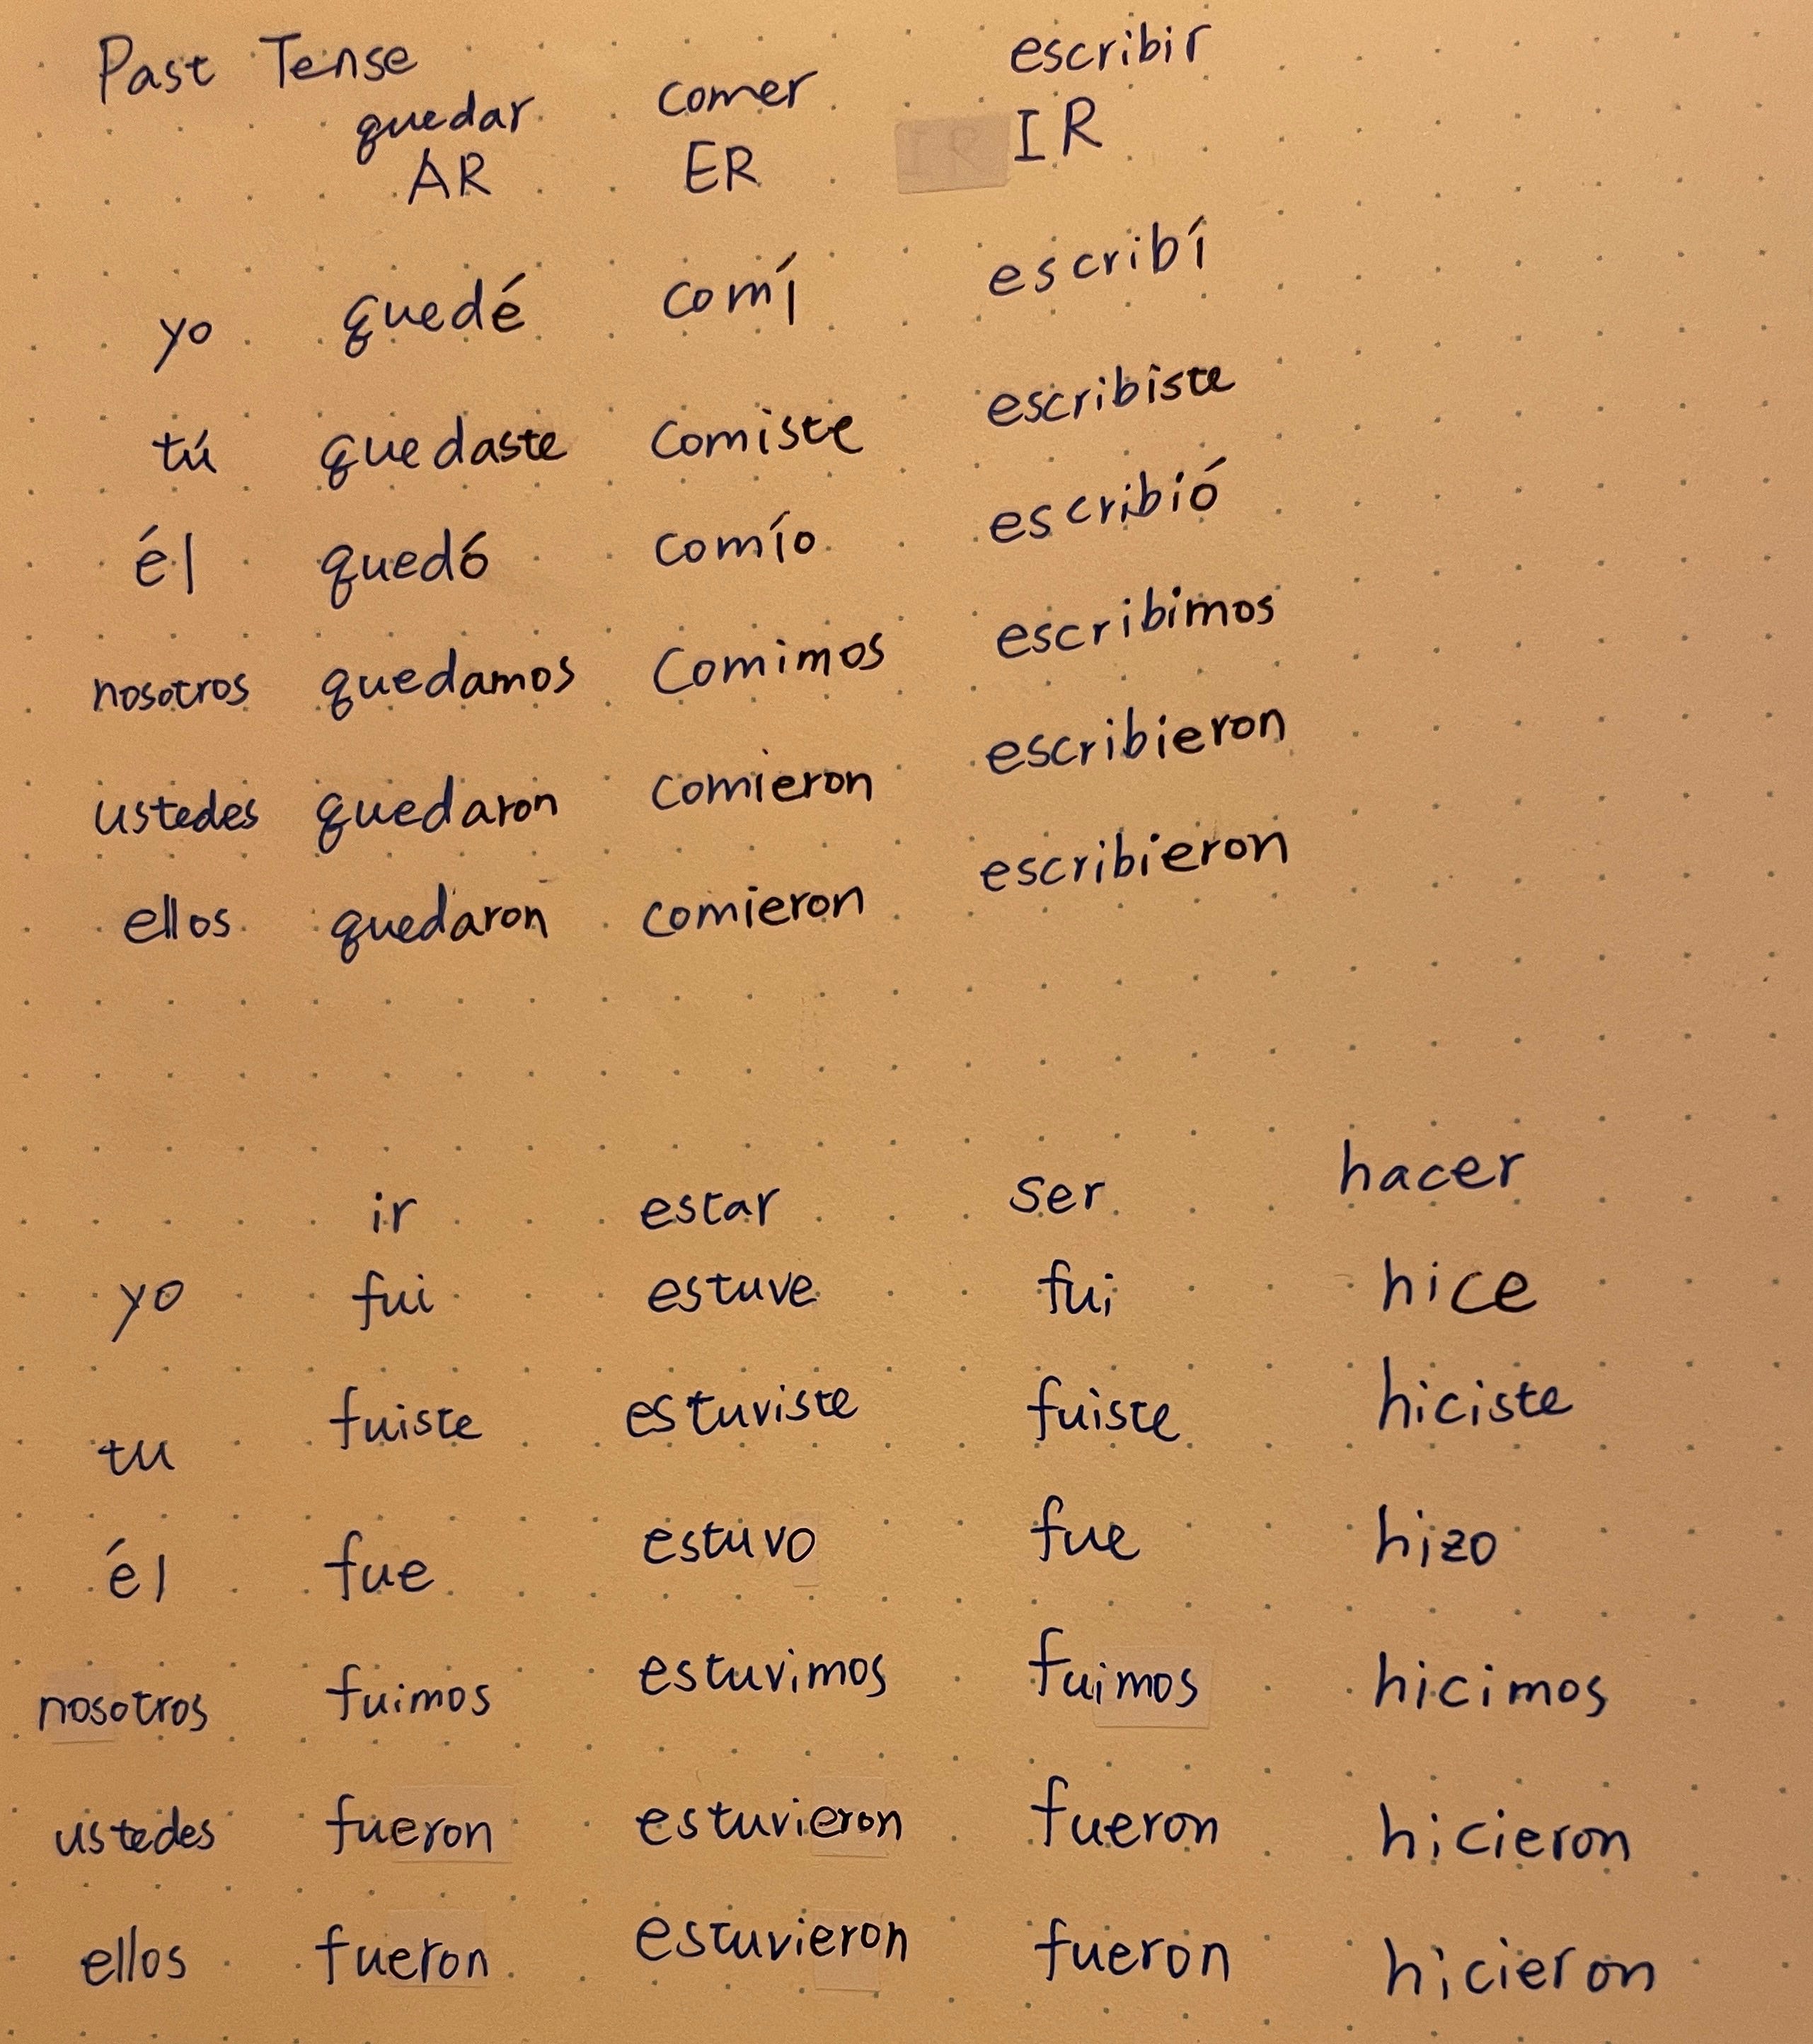 Past Tense
quedar comer escribir
AR ER IR IR
yo quedé comí escribí
tú quedaste comiste escribiste
él quedó comío escribió
nosotros quedamos comimos escribimos
ustedes quedaron comieron escribieron
ellos quedaron comieron escribieron
ir estar ser hacer
yo fui estuve fui hice
tu fuiste estuviste fuiste hiciste
él fue estuvo fue hizo
nosotros fuimos estuvimos fuimos hicimos
ustedes fueron estuvieron fueron hicieron
ellos fueron estuvieron fueron hicieron